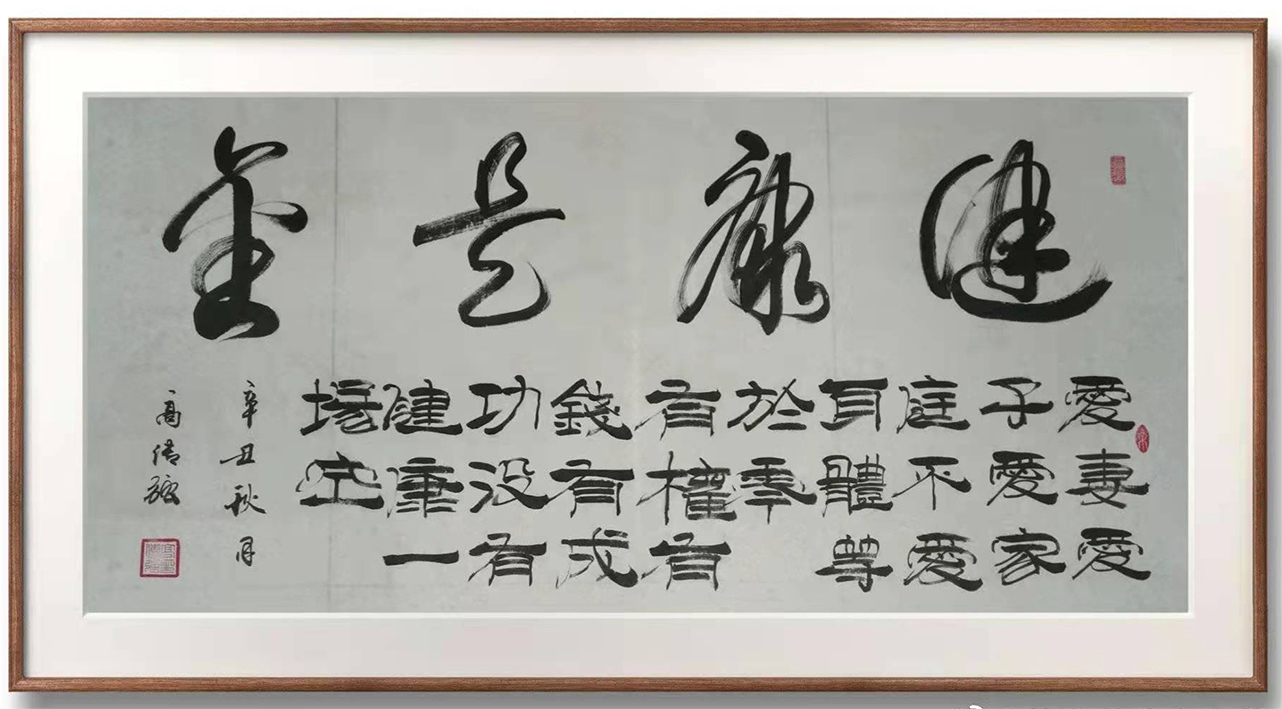 健康是金
愛妻愛
子愛家
庭不愛
身體等
於零
有權有
錢有成
功没有
健康一
場空
辛丑秋月
高